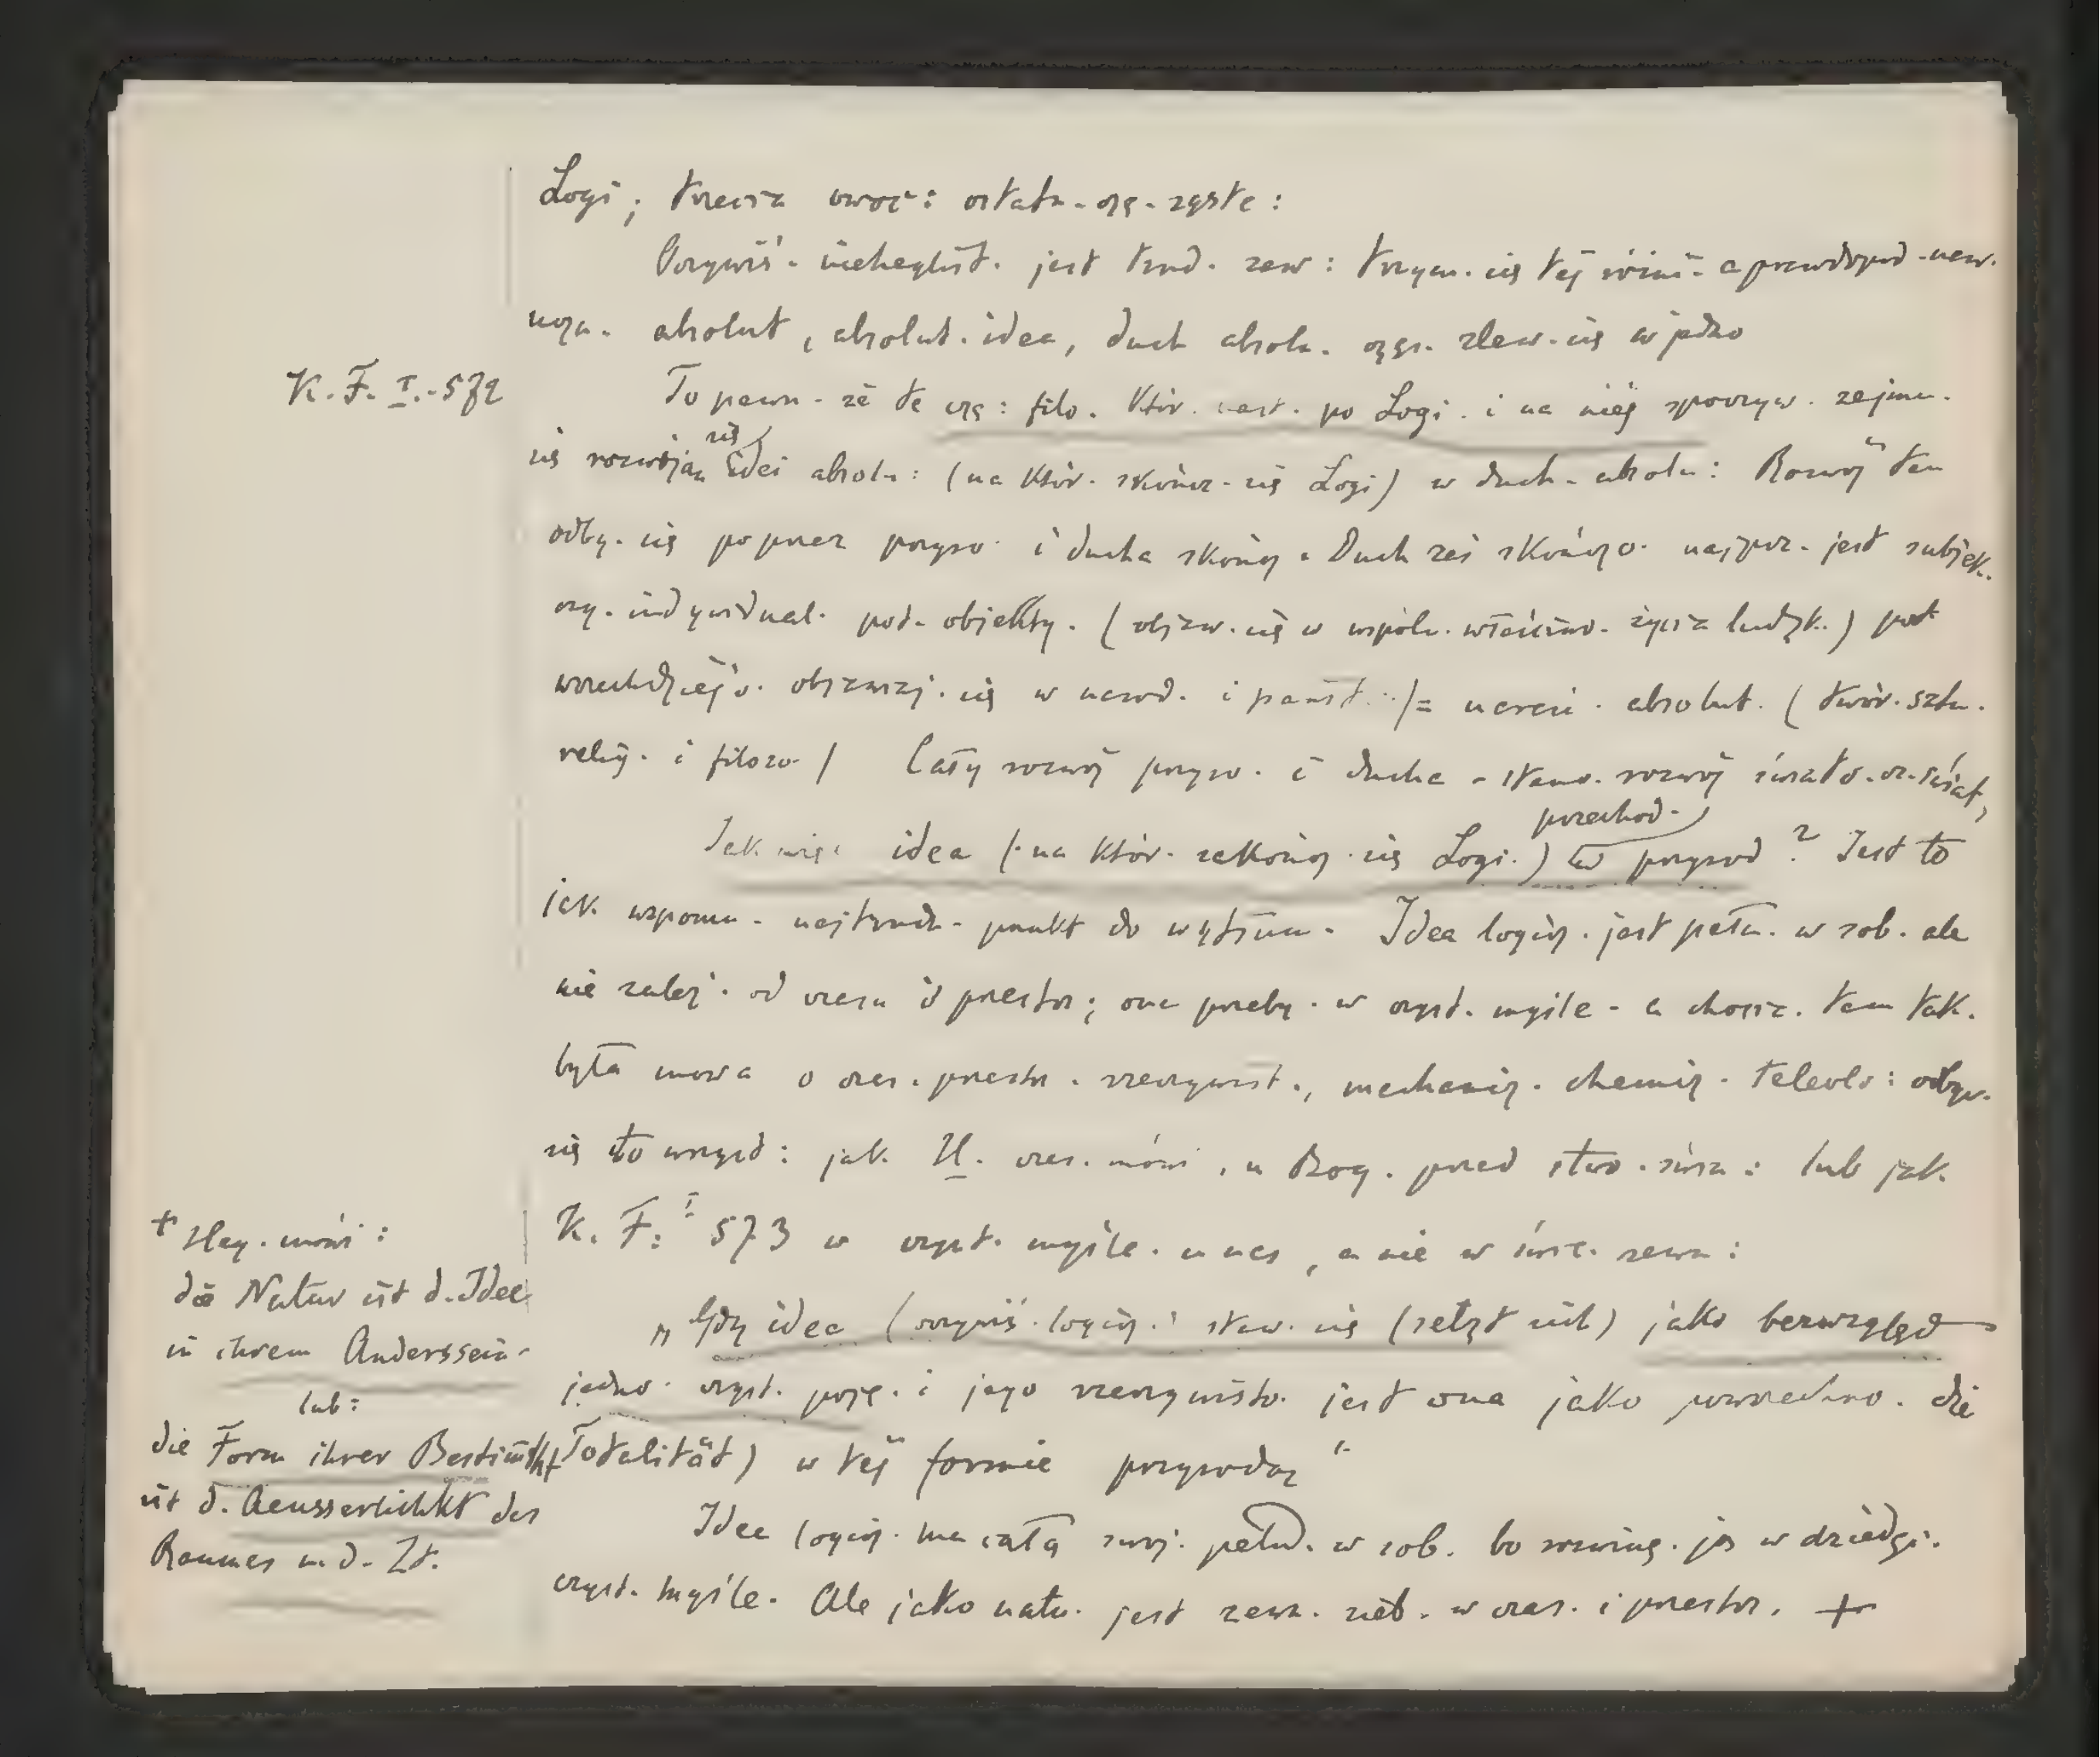 Logi; trzecia owoc: ostatn. czę. syste:
Oczywiś. nieheglist. jest trud. zaw: trzym. się tej różni. a prawdopod. naw.
absolut, absolut. idea, duch absolu. częs. zlew. się w jedno
K. F. I. 572
To pewn. że te czę: filo. któr. nast. po Logi. i na niej spoczyw. zajmu.
się rozwojem się idei absolu: (na któr. skończ. się Logi) w duch. absolu: Rozwój ten
odby. się poprzez przyro. i ducha skońcż. Duch zaś skończo. najprz. jest subjek.
czy. indywidual. pot. objekty. (objaw. się w wspóln. właściwo. życia ludzk.) pot
objawiaj. się w narod. i państ. /= nareści. absolut. (twór. sztu.
relig. i filozo. / Cały rozwój przyro. i ducha - stano. rozwój świato.
Jak więc idea (na któr. zakończ. się Logi.) przechod. w przyrod? Jest to
jak. wspomn. najtrud. punkt do wytłum. Idea logicz. jest pełn. w sob. ale
nie zależ. od czasu i przestrz; ona przeby. w czyst. myśle. - a chocia. tam tak.
była mowa o czas. przestrz. rzeczywist., mechanicz. chemicz. teleolo: odbyw.
się to wszyst: jak H. czas. mówi, u Bog. przed stwo. świa: lub jak
K. F. I 573 w czyst. myśle. u nas, a nie w świe. zewn:
„Gdy idea (oczywiś. logicz.) staw. się (setzt sich) jako bezwzględ
jedno. czyst. poję. i jego rzeczywisto. jest ona jako powszechno. die
Totalität) w tej formie przyrodą“
Idea logicz. ma całą swoj. pełn. w sob. bo rozwinę. ją w dziedzi.
czyst. myśle. Ale jako natu. jest zewn. sieb. w czas. i przestrz. +
+ Heg. mówi:
die Natur ist d. Idee
in ihrem Anderssein.
lub:
die Form ihrer Bestimtht
ist d. Aeusserlichkt des
Raumes u. d. Zt.